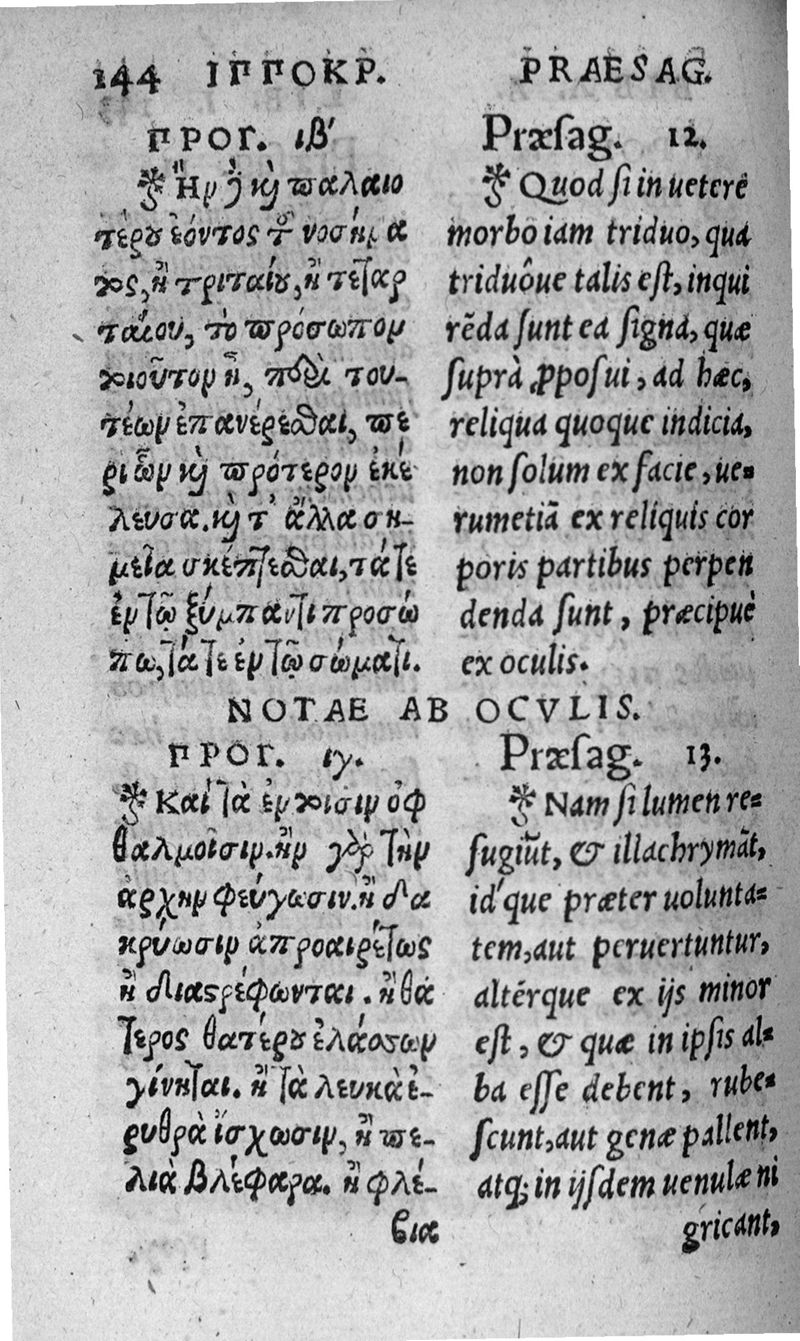 144 ΙΠΠΟΚΡ. PRAESAG.
ΠΡΟΓ. ιβ′
Ἢν δὲ καὶ παλαιο
τέρου ἐόντος τοῦ νοσήμα
τος, ἢ τριταίου, ἢ τεταρ
ταίου, τὸ πρόσωπον
τοιοῦτον ᾖ, περὶ του-
τέων ἐπανέρεσθαι, πε
ρὶ ὧν καὶ πρότερον ἐκέ
λευσα. καὶ τ' ἄλλα ση-
μεῖα σκέπτεσθαι, τά τε
ἐν τῷ ξύμπαντι προσώ
πω, τά τε ἐν τῷ σώματι.
Præsag. 12.
Quod si in ueterẽ
morbo iam triduo, qua
triduóue talis est, inqui
rẽda sunt ea signa, quæ
suprà ꝓposui, ad hæc,
reliqua quoque indicia,
non solum ex facie, ue-
rumetiã ex reliquis cor
poris partibus perpen
denda sunt, præcipuè
ex oculis.
NOTAE AB OCVLIS.
ΠΡΟΓ. ιγ.
Καὶ τὰ ἐν τοῖσιν ὀφ
θαλμοῖσιν. ἢν γὰρ τὴν
ἀρχὴν φεύγωσιν. ἢ δα
κρύωσιν ἀπροαιρέτως
ἢ διαστρέφωνται. ἢ θά
τερος θατέρου ἐλάσσων
γίνηται. ἢ τὰ λευκὰ ἐ-
ρυθρὰ ἴσχωσιν, ἢ πε-
λιὰ βλέφαρα. ἢ φλέ-
βια
Præsag. 13.
Nam si lumen re-
fugiũt, & illachrymãt,
id'que præter uolunta-
tem, aut peruertuntur,
altérque ex ijs minor
est, & quæ in ipsis al-
ba esse debent, rube-
scunt, aut genæ pallent,
atq; in ijsdem uenulæ ni
gricant,